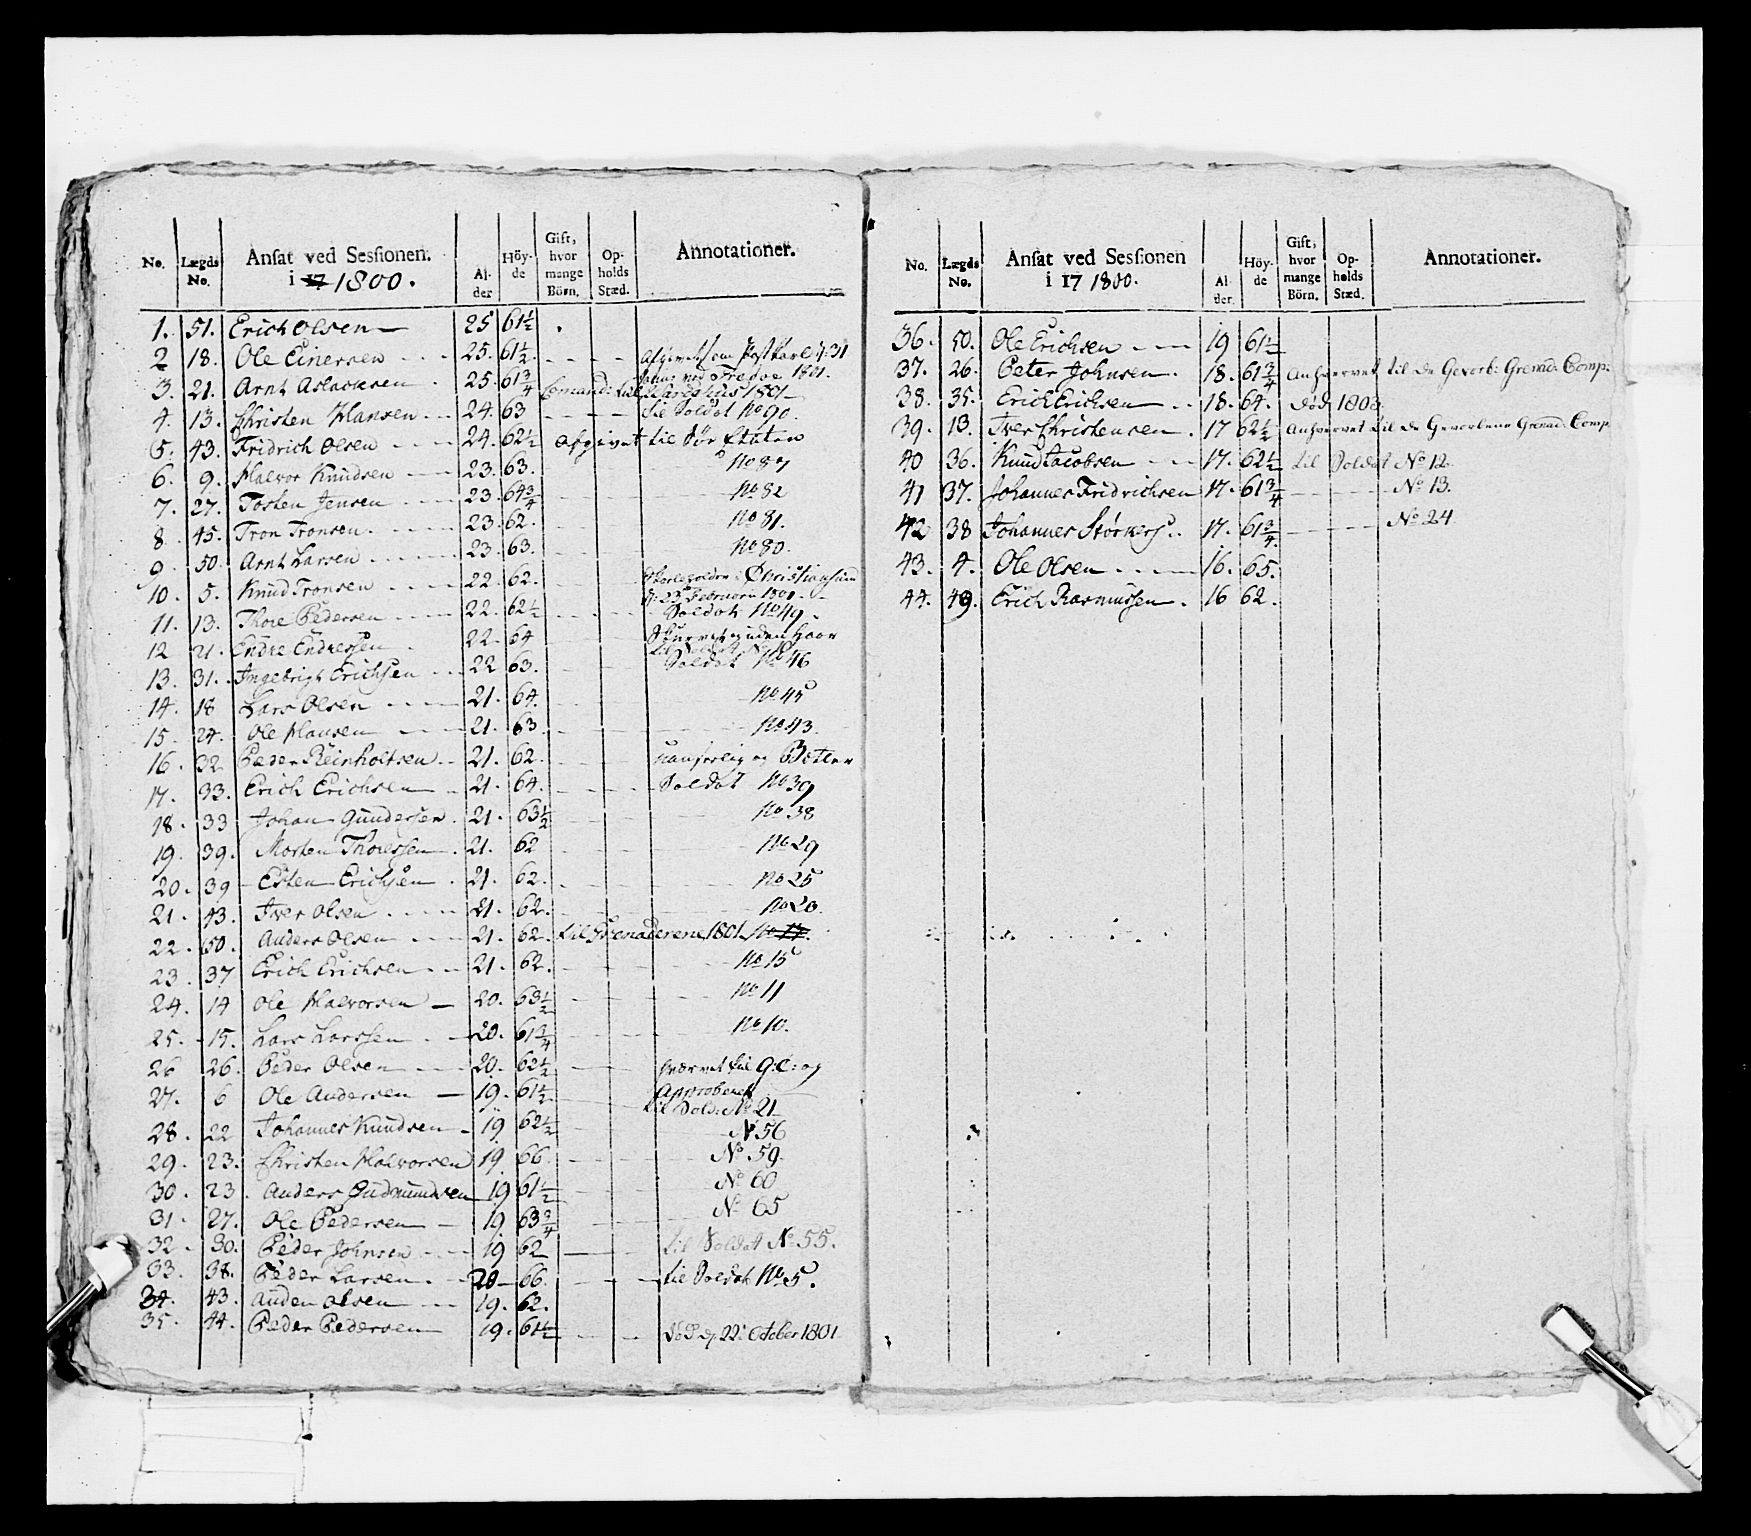 No. Lægds No. Ansat ved Sessionen. i 17 1800. Al- der Höy- de Gift, hvor mange Börn. Op- holds Stæd. Annotationer.
1. 51. Erich Olsen 25 61½
2 18. Ole Einersen 25. 61½
3. 21. Arnt Aslacksen 25. 61¾ Comand: til 1801
4. 13. Christen Hansen 24. 63 til Soldat No 90.
5. 43. Fridrich Olsen 24. 62½ afgivet til Søe Etaten
6. 9. Halvor Knudsen 23. 63. No 87
7. 27. Tosten Jensen 23. 64¾ No 82
8. 45. Tron Tronsen. 23. 62. No 81.
9. 50. Arnt Larsen 23. 63. No 80.
10. 5. Knud Tronsen 22. 62. Christiansund
Februarii 1800.
11. 13. Thore Pedersen 22. 62½ Soldat No 49
12 21. Endre Endresen 22. 64 uden Haar
til Soldat No
13. 31. Ingebrigt Erichsen 22 63. Soldat No 46
14. 18 Lars Olsen 21. 64. No 45
15. 24. Ole Hansen 21. 63 No 43.
16. 32 Peder Reinholtsen 21. 62. vanførlig og Betler
17. 33. Erich Erichsen 21. 64. Soldat No 39
18. 33 Johan Gundersen 21. 63½ No 38
19. 39. Morten Thoresen 21. 62 No 29
20. 39 Esten Erichsen 21. 62. No 25
21. 43. Iver Olsen 21. 62. No 20.
22. 50. Anders Olsen 21. 62. til Grenaderene 1801 No 17.
23. 37 Erich Erichsen 21. 62. No 15
24. 14 Ole Halvorsen 20. 63½ No 11
25. 15. Lars Larsen 20. 61¾ No 10.
26 26. Peder Olsen 20. 62½ hværvet til G: C: og
27. 6 Ole Andersen 19. 61½ Approberet
til Sold: No 21
28. 22 Johannes Knudsen 19 62½ No 56
29. 23. Christen Halvorsen 19 66. No 59.
30. 23. Anders Gudmundsen 19 61½ No 60
31. 27. Ole Pedersen 19 63¾ No 65
32. 30. Peder Johnsen 19 62 til Soldat No 55.
33. 38. Peder Larsen. 20 66. til Soldat No 5.
34. 43. Auden Olsen 19. 62.
35. 44. Peder Pedersen 19. 61½ død d. 22 October 1801
No. Lægds No. Ansat ved Sessionen i 17 1800. Al der. Höy- de Gift, hvor mange Börn. Op- holds Stæd. Annotationer.
36. 50. Ole Erichsen 19 61½
37. 26. Peter Johnsen. 18. 61¾ anhværvet til de Gevorb: Grenad: Comp:
38. 35. Erich Erichsen 18. 64. død 1803.
39. 13. Iver Christensen. 17 62½ anhværvet til de Gevorbene Grenad: Comp
40 36. Knud Jacobsen 17. 62½ til Soldat No 12.
41 37. Johannes Fridrichsen 17. 61¾ No 13.
42 38 Johannes Størkers: 17. 61¾. No 24
43. 4. Ole Olsen 16. 65.
44. 49. Erich Rasmussen. 16 62.